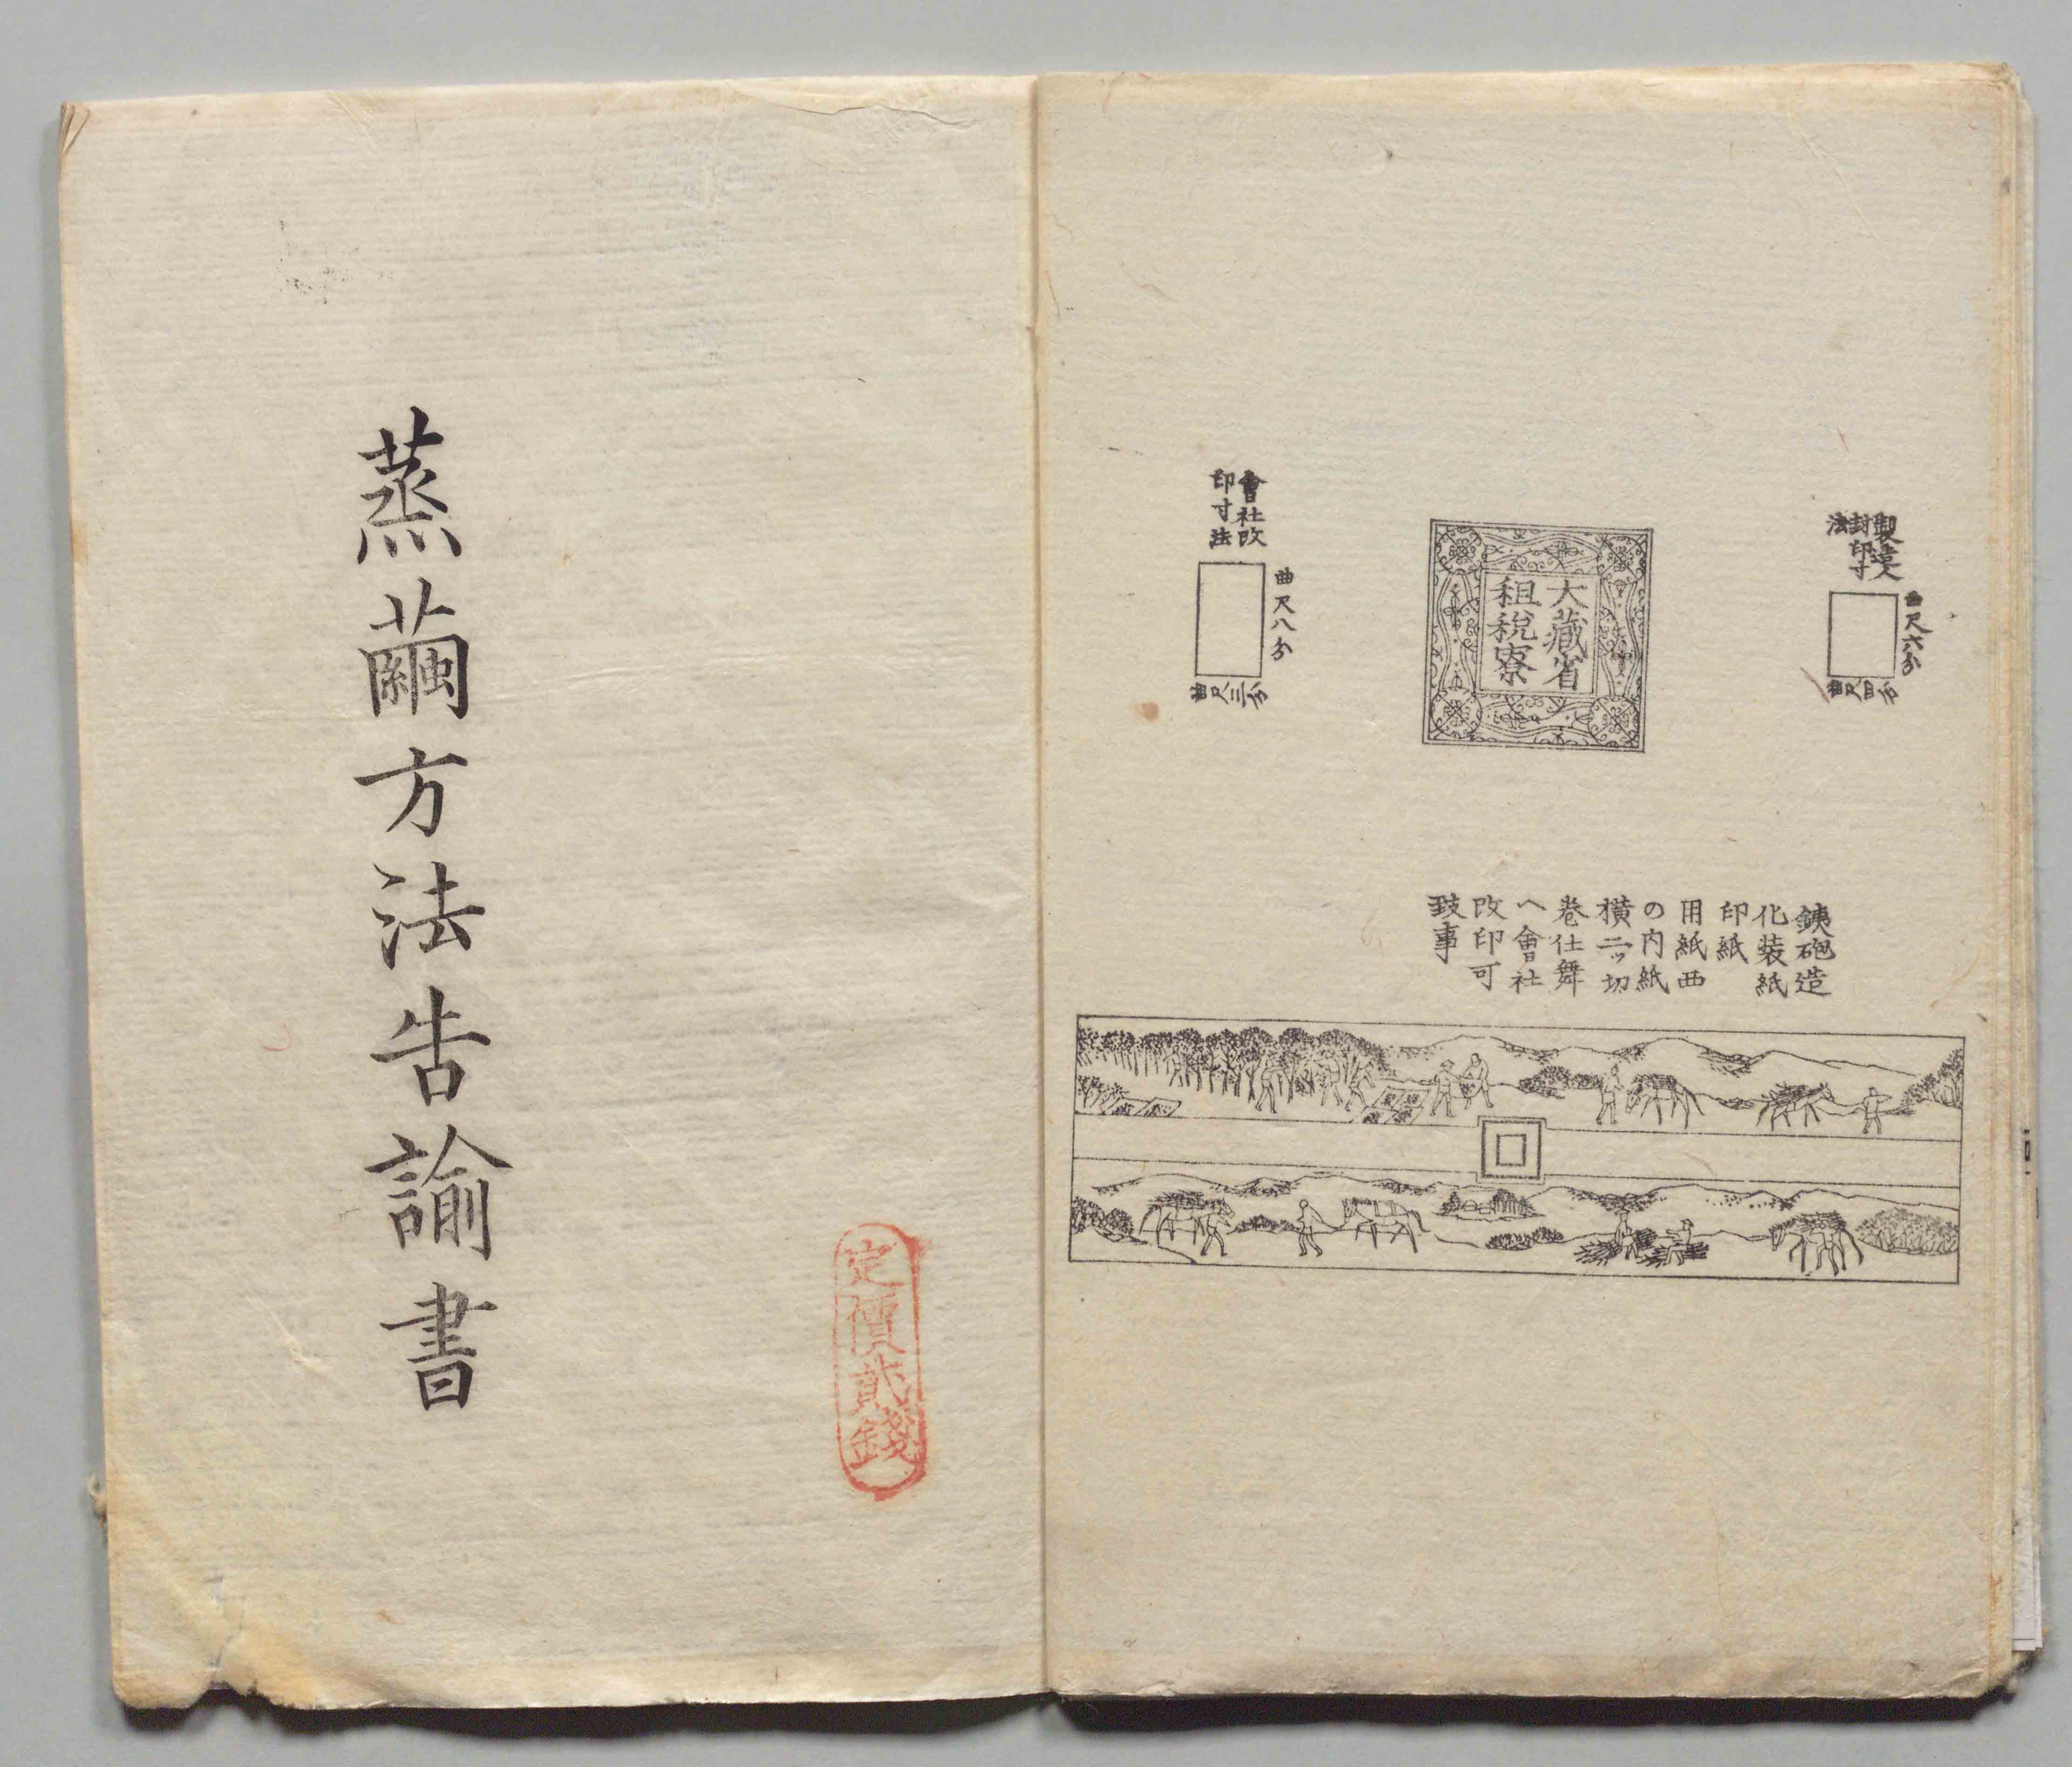 製造人
封印寸
法
曲尺六分
曲尺四分
大藏省
租税寮
會社改
印寸法
曲尺八分
曲尺三分
銕砲造
化装紙
印紙
用紙西
の内紙
横二ッ切
巻仕舞
へ會社
改印可
致事
蒸繭方法告諭書
定價貳錢